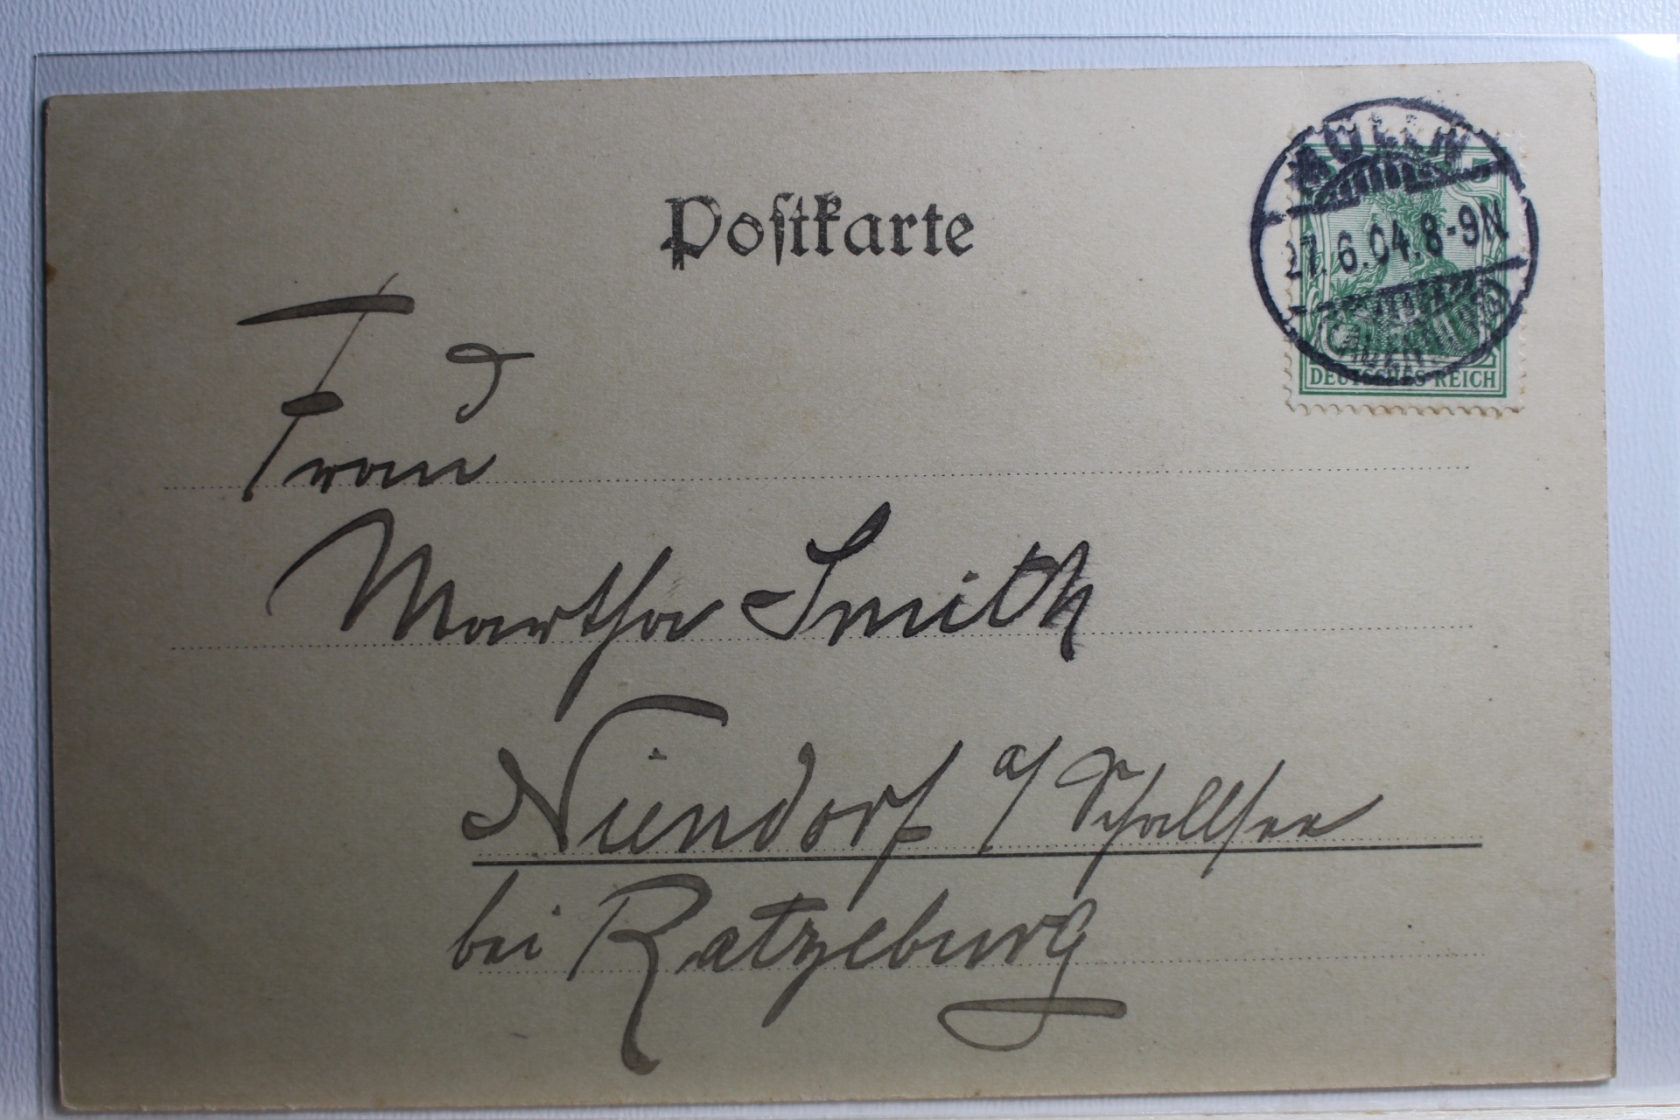 Postkarte
MÖLLN
27.6.04.8-9N
(LAUENBURG)
DEUTSCHES REICH
Frau
Martha Smith
Niendorf a/Schallsee
bei Ratzeburg